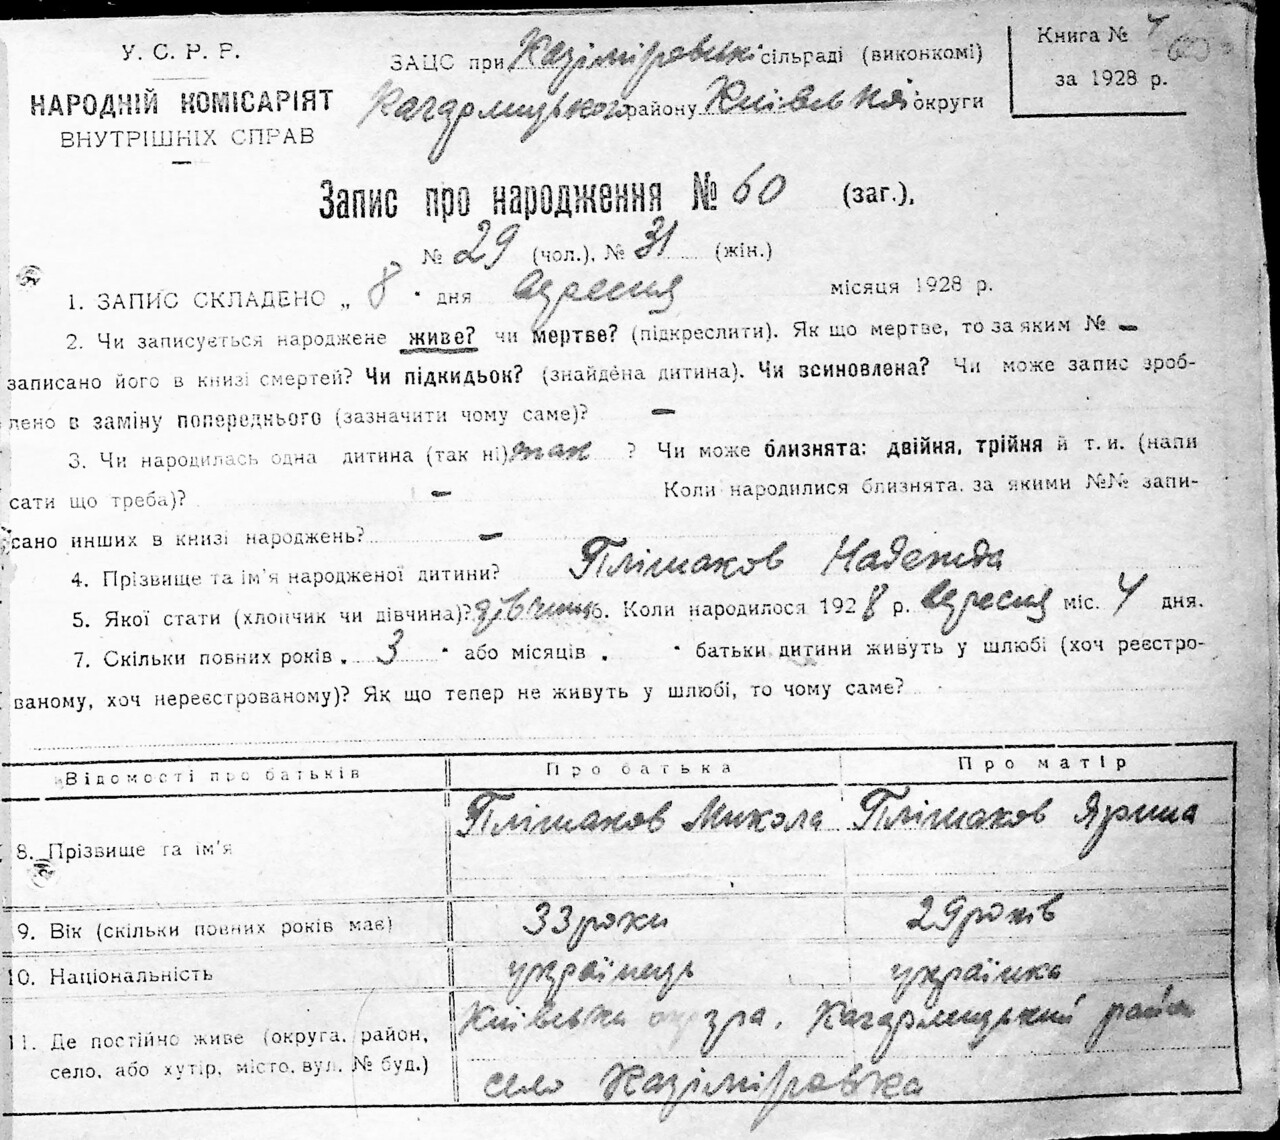 У. С. Р. Р.
НАРОДНІЙ КОМІСАРІЯТ
ВНУТРІШНІХ СПРАВ
ЗАЦС при Казіміровській сільраді (виконкомі)
Кагарлицького району Київської округи
Книга № 4
за 1928 р.
60
Запис про народження № 60 (заг.),
№ 29 (чол.), № 31 (жін.)
1. ЗАПИС СКЛАДЕНО „ 8 " дня вересня місяця 1928 р.
2. Чи записується народжене живе? чи мертве? (підкреслити). Як що мертве, то за яким № –
записано його в книзі смертей? Чи підкидьок? (знайдена дитина). Чи всиновлена? Чи може запис зроб-
лено в заміну попереднього (зазначити чому саме)? –
3. Чи народилась одна дитина (так ні) так ? Чи може близнята: двійня, трійня й т. и. (напи
сати що треба)? – Коли народилися близнята, за якими №№ запи-
сано инших в книзі народжень? –
4. Прізвище та ім'я народженої дитини? Плішаков Надежда
5. Якої стати (хлопчик чи дівчина)? дівчина 6. Коли народилося 1928 р. вересня міс. 4 дня.
7. Скільки повних років „ 3 " або місяців „ " батьки дитини живуть у шлюбі (хоч реєстро-
ваному, хоч нереєстрованому)? Як що тепер не живуть у шлюбі, то чому саме?
Відомості про батьків Про батька Про матір
8. Прізвище та ім'я Плішаков Микола Плішаков Ярина
9. Вік (скільки повних років має) 33 роки 29 років
10. Національність українець українка
11. Де постійно живе (округа, район, Київська округа, Кагарлицький район
село, або хутір, місто, вул. № буд.) село Казіміровка